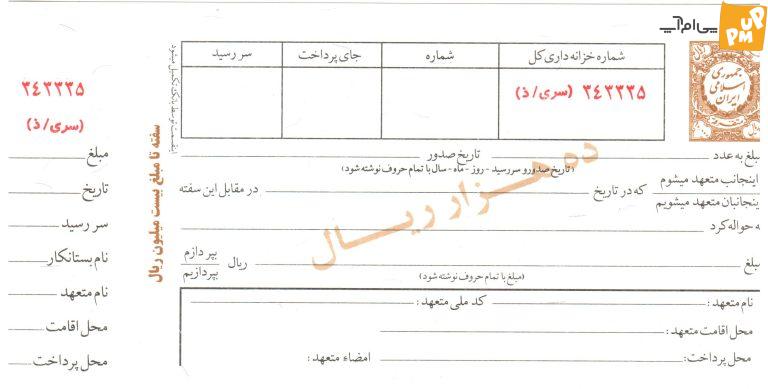 پی‌ام‌آپ
PM UP
شماره خزانه داری کل
شماره
جای پرداخت
سر رسید
۳۴۳۳۳۵ (سری/ذ)
اینقسمت توسط بانک تکمیل میشود
جمهوری
اسلامی
ایران
ده هزار ریال
سفته تا مبلغ بیست میلیون ریال
مبلغ به عدد
تاریخ صدور
(تاریخ صدور و سررسید - روز - ماه - سال با تمام حروف نوشته شود)
اینجانب متعهد میشوم
ینجانبان متعهد میشویم
که در تاریخ
در مقابل این سفته
ه حواله کرد
مبلغ
ریال
بپردازم
بپردازیم
(مبلغ با تمام حروف نوشته شود)
نام متعهد:
کد ملی متعهد:
محل اقامت متعهد:
محل پرداخت:
امضاء متعهد:
۳۴۳۳۳۵
(سری/ذ)
مبلغ
تاریخ
سر رسید
نام بستانکار
نام متعهد
محل اقامت
محل پرداخت